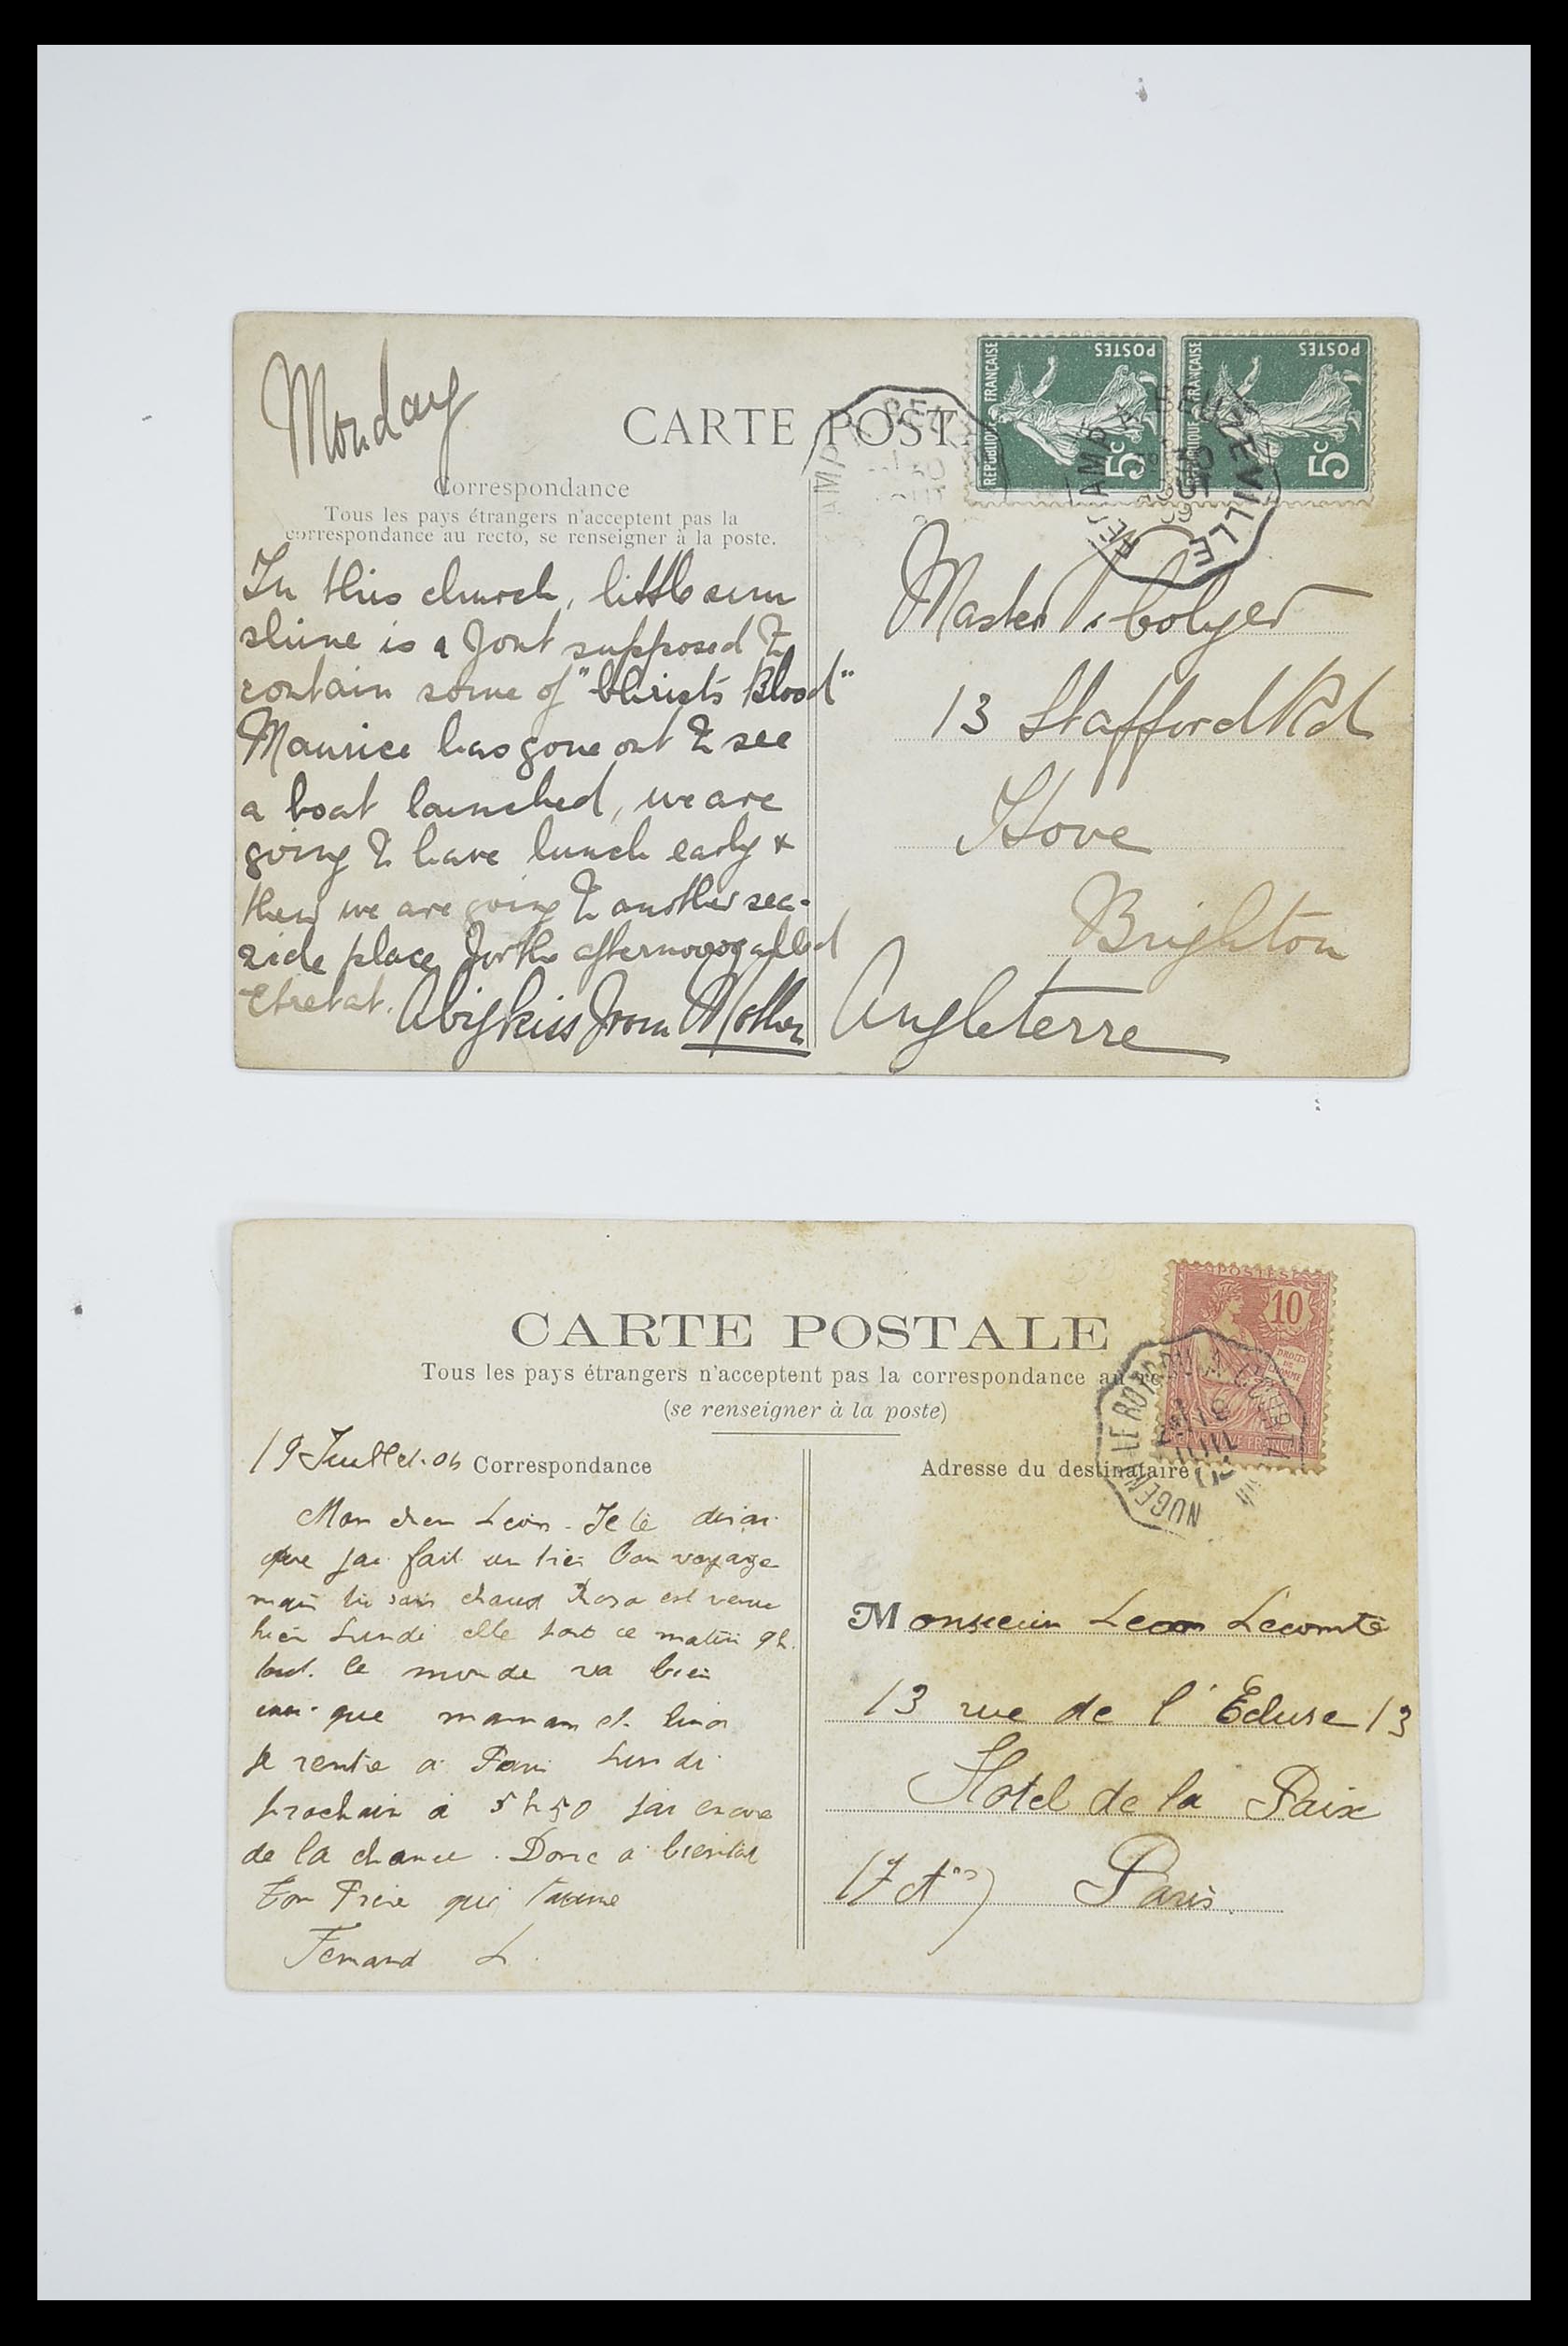 Monday
CARTE POST
Correspondance
Tous les pays étrangers n'acceptent pas la
correspondance au recto, se renseigner à la poste.
In this church, little sun
shine is a font supposed to
contain some of "Christ's Blood"
Maurice has gone out to see
a boat launched, we are
going to have lunch early &
then we are going to another sea-
side place for the afternoon called
Etretat. A big kiss from Mother
REPUBLIQUE FRANÇAISE
POSTES
5c
REPUBLIQUE FRANÇAISE
POSTES
5c
Master Colyer
13 Stafford Rd
Hove
Brighton
Angleterre
CARTE POSTALE
Tous les pays étrangers n'acceptent pas la correspondance au re
(se renseigner à la poste)
POSTES
10
DROITS DE L'HOMME
REPUBLIQUE FRANÇAISE
NOGENT LE ROTROU A
19 Juillet 06 Correspondance
Adresse du destinataire
Mon cher Leon. Je te dirai
que jai fait un tres bon voyage
mais tu sais chaud Rosa est venue
hier Lundi elle part ce matin 9h.
tout le monde va bien
que maman et
Je rentre a Paris Lundi
prochain a 5h50 jai encore
de la chance. Donc a bientot
ton Frere qui t'aime
Fernand L.
Monsieur Leon Lecomte
13 rue de l'Ecluse 13
Hotel de la Paix
Paris